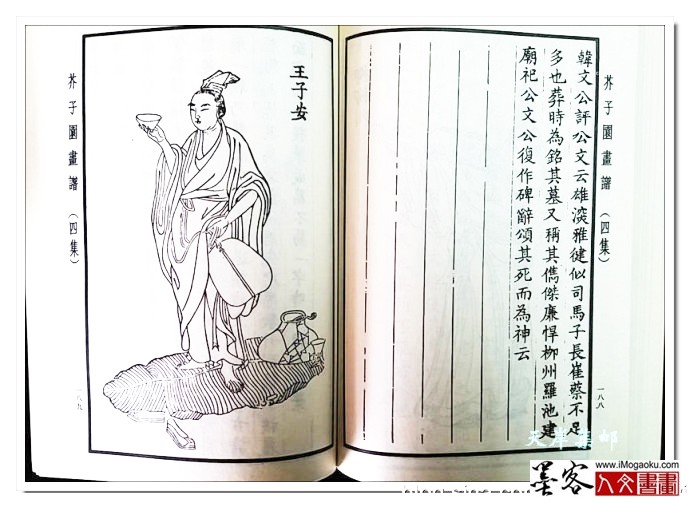 芥子園畫譜
(四集)
一八八
韓文公評公文云雄深雅健似司馬子長崔蔡不足
多也葬時為銘其墓又稱其儁傑廉悍柳州羅池建
廟祀公文公復作碑辭頌其死而為神云
王子安
芥子園畫譜
(四集)
一八九
天岸集邮
墨客
www.iMogaoku.com
人文書畫